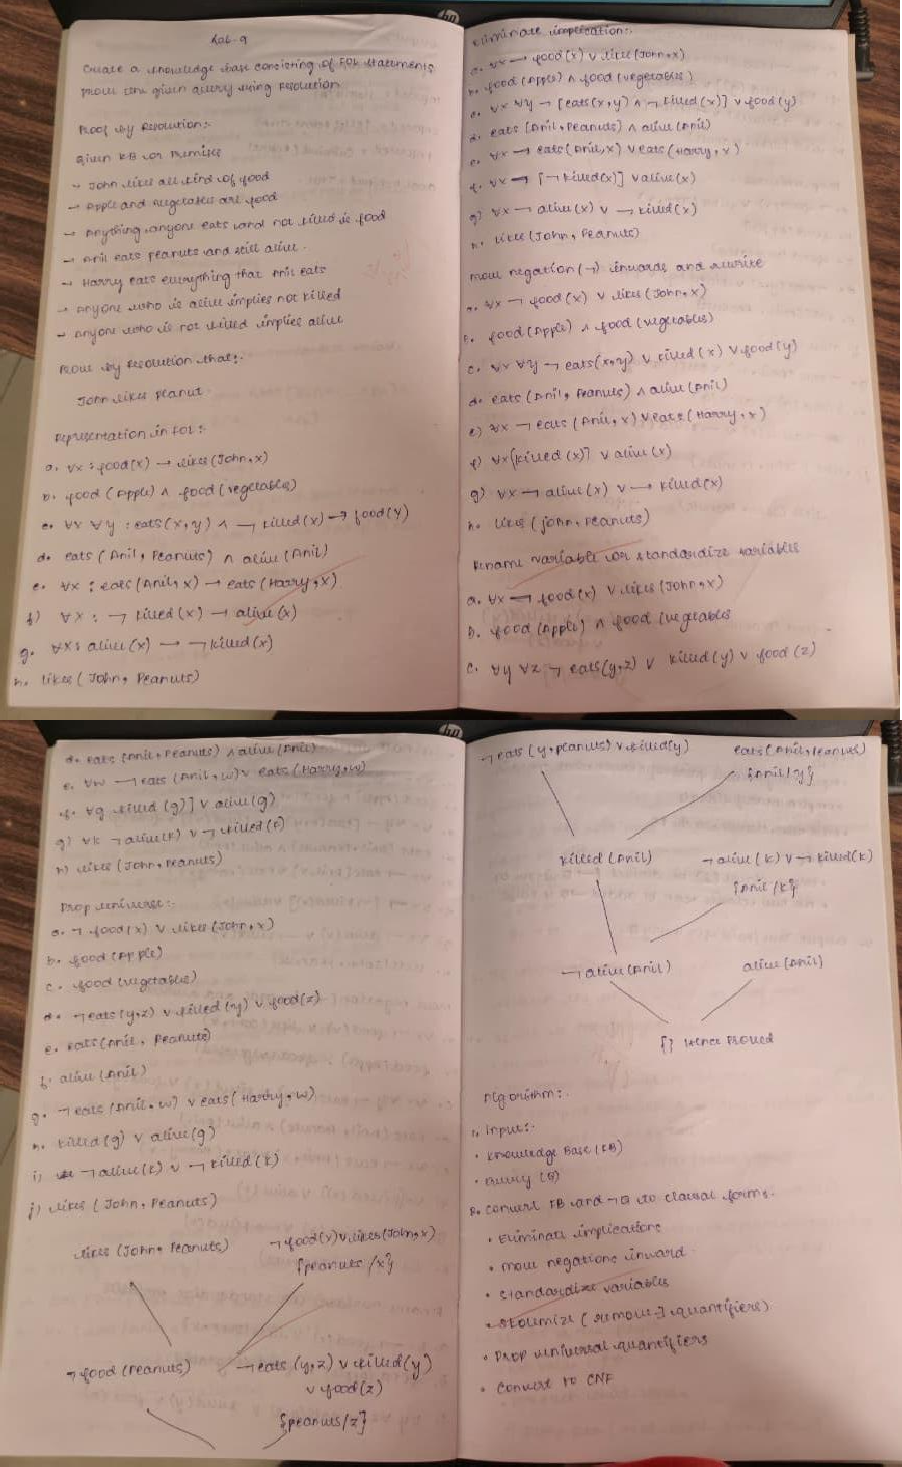 Lab-9
Create a knowledge base consisting of FOL statements
prove the given query using resolution
Proof by Resolution:-
Given KB or Premises
- John likes all kind of food
- Apple and vegetables are food
- Anything anyone eats and not killed is food
- Anil eats Peanuts and still alive.
- Harry eats everything that Anil eats
- Anyone who is alive implies not killed
- Anyone who is not killed implies alive
Prove by Resolution that:-
John likes Peanut.
Representation in FOL:-
a. ∀x : food(x) → likes(John, x)
b. food(Apple) ∧ food(vegetables)
c. ∀x ∀y : eats(x,y) ∧ ¬ killed(x) → food(y)
d. eats (Anil, Peanuts) ∧ alive (Anil)
e. ∀x : eats(Anil, x) → eats(Harry, x)
f) ∀x : ¬ killed(x) → alive(x)
g. ∀x : alive(x) → ¬killed(x)
h. likes (John, Peanuts)
Eliminate implication:-
a. ∀x ¬ food(x) ∨ likes(John,x)
b. food(Apple) ∧ food(vegetables)
c. ∀x ∀y ¬ [eats(x,y) ∧ ¬ killed(x)] ∨ food(y)
d. eats [Anil, Peanuts) ∧ alive(Anil)
e. ∀x ¬ eats(Anil,x) ∨ eats(Harry, x)
f. ∀x ¬ [¬killed(x)] ∨ alive(x)
g) ∀x ¬ alive(x) ∨ ¬ killed(x)
h. likes (John, Peanuts)
move negation (¬) inwards and rewrite
a. ∀x ¬ food (x) ∨ likes (John, x)
b. food(Apple) ∧ food (vegetables)
c. ∀x ∀y ¬ eats(x,y) ∨ killed (x) ∨ food(y)
d. eats (Anil, Peanuts) ∧ alive(Anil)
e) ∀x ¬ eats (Anil, x) ∨ eats (Harry, x)
f) ∀x [killed (x)] ∨ alive (x)
g) ∀x ¬ alive (x) ∨ ¬ killed(x)
h. likes (john, Peanuts)
Rename variable or standardize variables
a. ∀x ¬ food (x) ∨ likes (John, x)
b. food (Apple) ∧ food (vegetables
c. ∀y ∀z ¬ eats(y,z) ∨ killed (y) ∨ food (z)
d. eats (Anil, Peanuts) ∧ alive (Anil)
e. ∀w ¬ eats (Anil, w) ∨ eats (Harry, w)
f. ∀g killed (g)] ∨ alive (g)
g) ∀k ¬ alive(k) ∨ ¬ killed (k)
h) likes (John, Peanuts)
Drop universe:-
a. ¬ food (x) ∨ likes (John, x)
b. food (Apple)
c. food (vegetables)
d. ¬ eats (y,z) ∨ killed (y) ∨ food(z)
e. eats (Anil, Peanuts)
f. alive (Anil)
g. ¬ eats (Anil, w) ∨ eats (Harry, w)
h. killed (g) ∨ alive (g)
i) ¬ alive (k) ∨ ¬ killed (k)
j) likes (John, Peanuts)
likes (John, Peanuts) ¬ food(x) ∨ likes (John, x)
{peanuts /x}
¬ food (Peanuts) ¬ eats (y,z) ∨ killed (y)
∨ food (z)
{peanuts/z}
¬ eats (y, peanuts) ∨ killed(y) eats (Anil, peanuts)
{Anil/y}
killed (Anil) ¬ alive (k) ∨ ¬ killed(k)
{Anil /k}
¬ alive (Anil) alive (Anil)
{} Hence Proved
Algorithm:-
1. Input:-
• Knowledge Base (KB)
• Query (Q)
2. Convert KB and ¬Q to clausal form.
• Eliminate implications
• move negations inward
• Standardize variables
• Skolemize (remove ∃ quantifiers)
• Drop universal quantifiers
• Convert to CNF